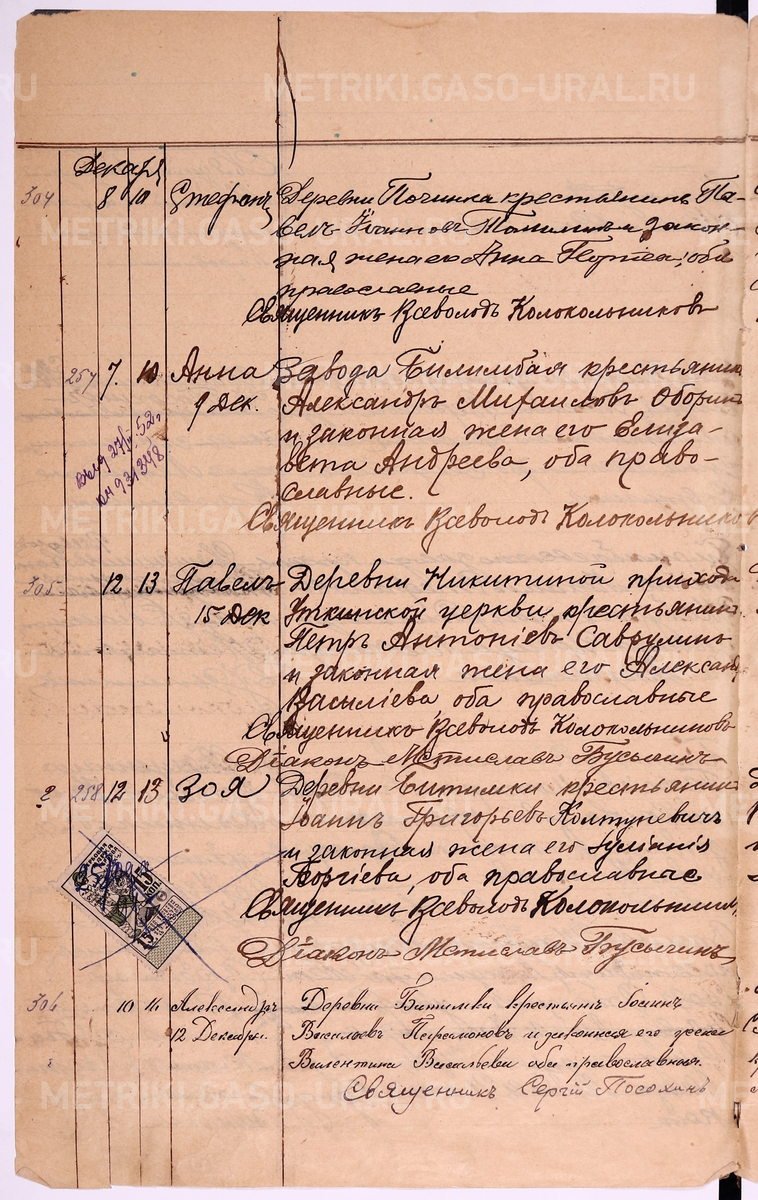 METRIKI.GASO-URAL.RU
Декабря
304 8 10 Стефанъ Деревни Починка крестьянинъ Па-
велъ Іоанновъ и закон-
ная жена его Анна оба
православные
Священникъ Всеволодъ Колокольниковъ
257 7. 10 Анна Завода Билимбая крестьянинъ
9 Дек. Александръ Михаиловъ Оборинъ
и законная жена его Елиза-
вета Андреева, оба право-
славные.
Священникъ Всеволодъ Колокольников
305 12 13 Павелъ Деревни Никитиной прихода
15 Дек Уткинской церкви крестьянинъ
Петръ Антоніевъ Саврулинъ
и законная жена его Александ
Василіева, оба православные
Священникъ Всеволодъ Колокольниковъ
Діаконъ Мстиславъ Бусыгинъ
2 258 12 13 Зоя Деревни Битимки крестьянинъ
Іоаннъ Григорьевъ Колтуневичъ
и законная жена его Іуліанія
оба православные
Священникъ Всеволодъ Колокольник
15 КОП.
Діаконъ Мстиславъ Бусыгинъ
306 10 Александръ Деревни Битимки крестьян Іоаннъ
12 Декабря. Васильевъ Парамоновъ и законная его жена
Валентина Васильева оба православныя.
Священникъ Сергій Посохинъ